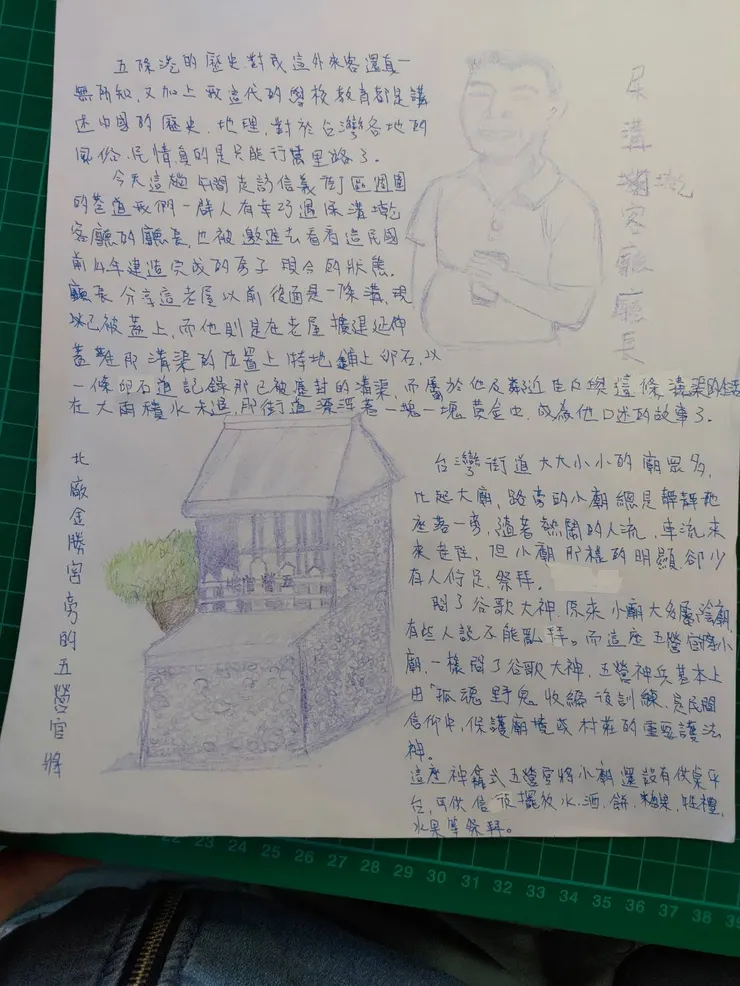 五條港的歷史對我這外來客還真一
無所知,又加上我這代的學校教育都是講
述中國的歷史、地理,對於台灣各地的
風俗、民情真的是只能行萬里路了。
今天這趟午間走訪信義街區週圍
的巷道我們一群人有幸巧遇保溝墘
客廳的廳長,也被邀進去看看這民國
前14年建造完成的房子現今的狀態。
廳長分享這老屋以前後面是一條溝,現
以已被蓋上,而他則是在老屋擴建延伸
蓋在那溝渠的位置上特地鋪上卵石,以
一條卵石道記錄那已被塵封的溝渠,而屬於他及鄰近住民與這條溝渠的生活
在大雨積水未退,那街道漂浮著一塊一塊黃金中,成為他口述的故事了。
屎溝墘客廳廳長
北廠金勝宮旁的五營官將
五營官將
台灣街道大大小小的廟眾多,
比起大廟,路旁的小廟總是靜靜地
座落一旁,隨著熱鬧的人流,車流來
來去去,但小廟那樣的明顯卻少
有人佇足、祭拜。
問了谷歌大神,原來小廟大多屬陰廟,
有些人說不能亂拜。而這座五營官將小
廟,一樣問了谷歌大神,五營神兵基本上
由「孤魂野鬼」收編後訓練,是民間
信仰中,保護廟境或村莊的重要護法
神。
這座神龕式五營官將小廟還設有供桌平
台,可供信眾擺放水、酒、餅、糖果、牲禮、
水果等祭拜。